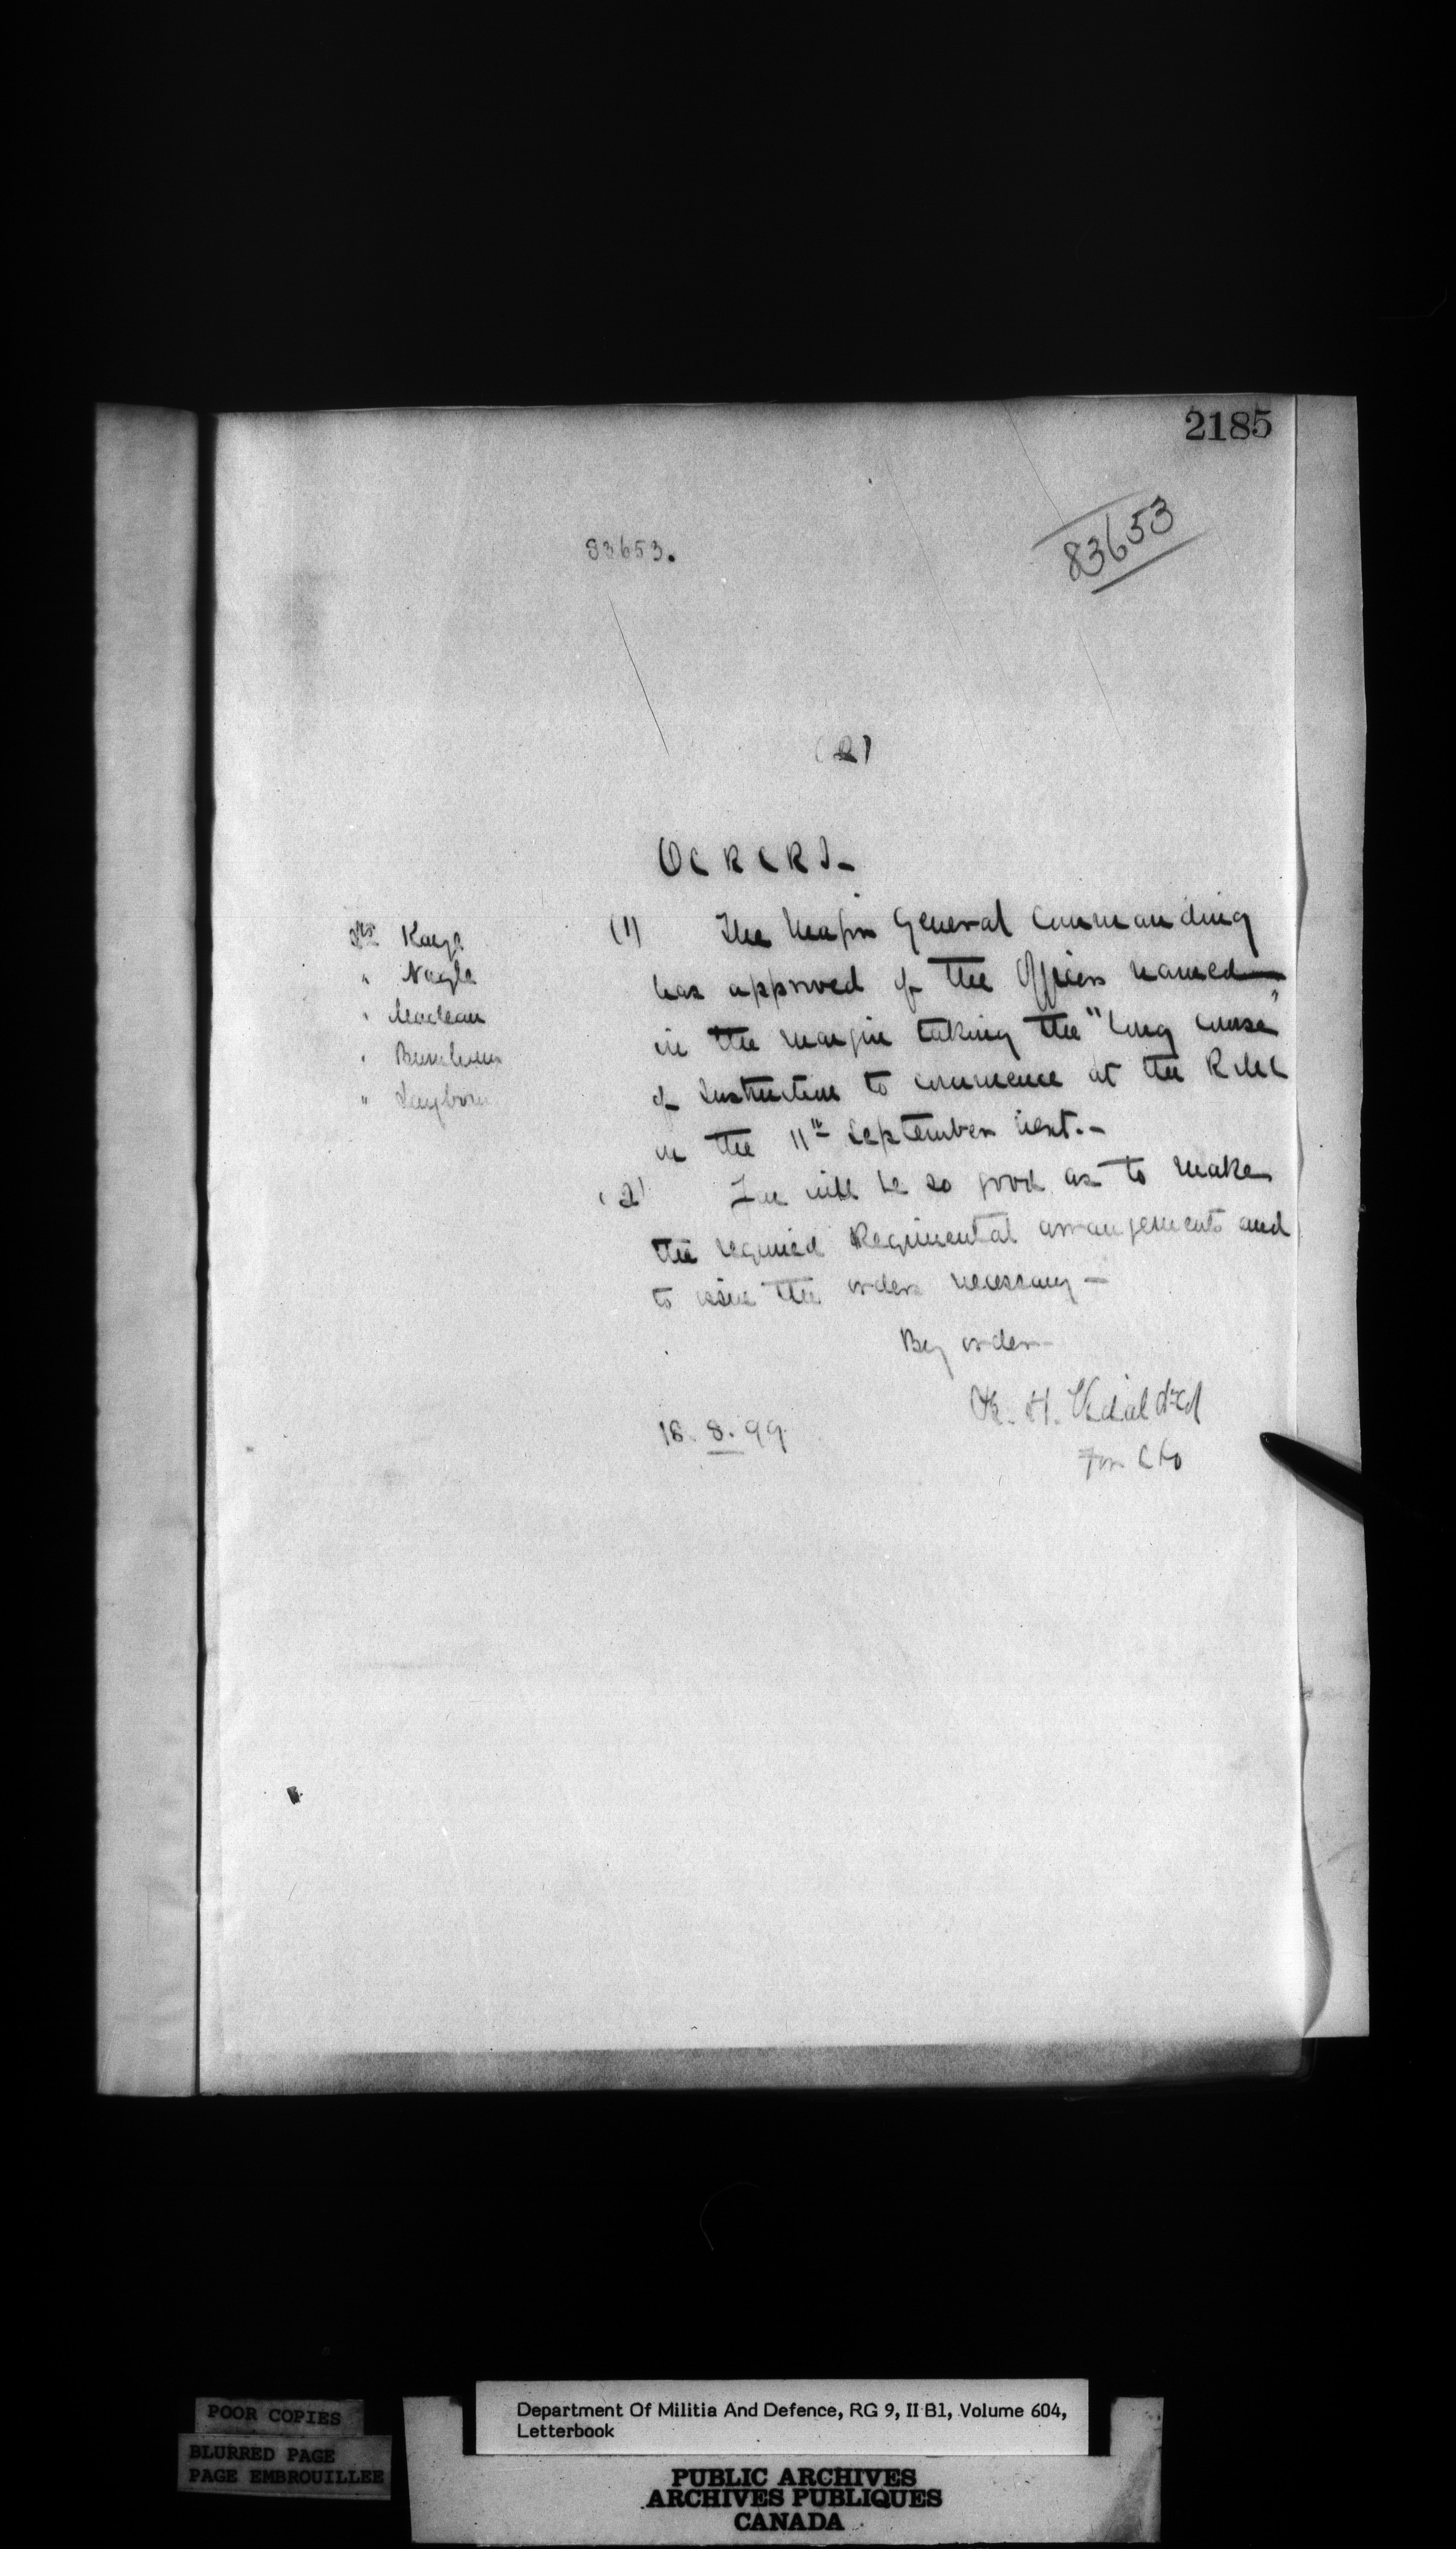 2185
83653
83653.
(2)
OC RCRI-
Lts Kaye
" Nagle
" Maclean
" Burnham
" Laybor
(1) The Major General Commanding
has approved of the Officers named
in the margin taking the "Long Course"
of Instruction to commence at the RMC
on the 11th September next.-
(2) You will be so good as to make
the required Regimental arrangements and
to issue the orders necessary -
By order
B. H. Vidal
For CSO
18. 8. 99
POOR COPIES
BLURRED PAGE
PAGE EMBROUILLEE
Department Of Militia And Defence, RG 9, II B1, Volume 604,
Letterbook
PUBLIC ARCHIVES
ARCHIVES PUBLIQUES
CANADA